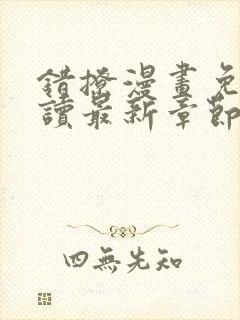 錯撩漫畫免
讀最新章節
四無先知